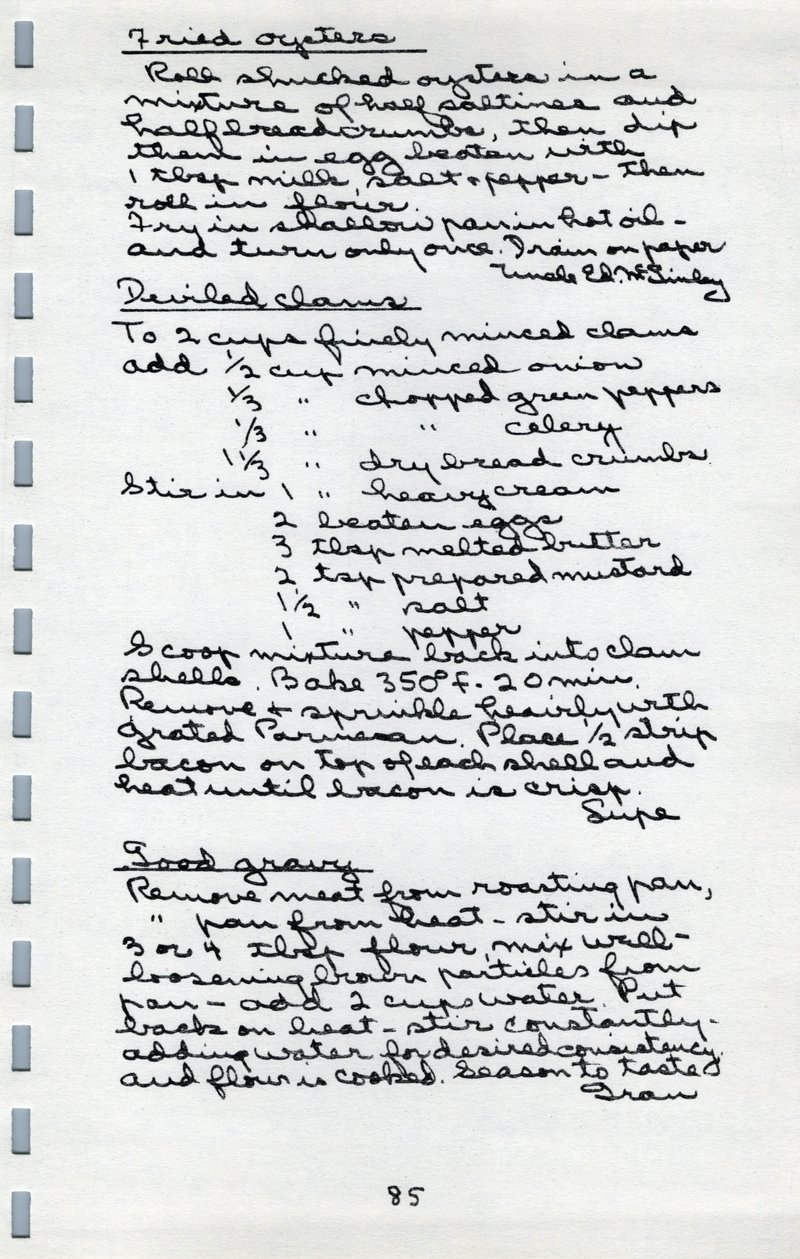 Fried oysters
Roll shucked oysters in a
mixture of half saltines and
half bread crumbs, then dip
them in egg beaten with
1 tbsp milk, salt & pepper - then
roll in flour.
Fry in shallow pan in hot oil -
and turn only once. Drain on paper
Uncle Ed. McGinley
Deviled clams
To 2 cups finely minced clams
add 1/2 cup minced onion
1/3 " chopped green peppers
1/3 " " celery
1 1/3 " dry bread crumbs.
Stir in 1 " heavy cream
2 beaten eggs
3 tbsp melted butter
2 tsp prepared mustard
1 1/2 " salt
1 " pepper
Scoop mixture back into clam
shells. Bake 350° F. 20 min.
Remove & sprinkle heavily with
grated Parmesan. Place 1/2 strip
bacon on top of each shell and
heat until bacon is crisp.
Supe
Good gravy
Remove meat from roasting pan,
" pan from heat - stir in
3 or 4 tbsp flour, mix well -
loosening brown particles from
pan - add 2 cups water. Put
back on heat - stir constantly -
adding water for desired consistency
and flour is cooked. Season to taste
Gran
85